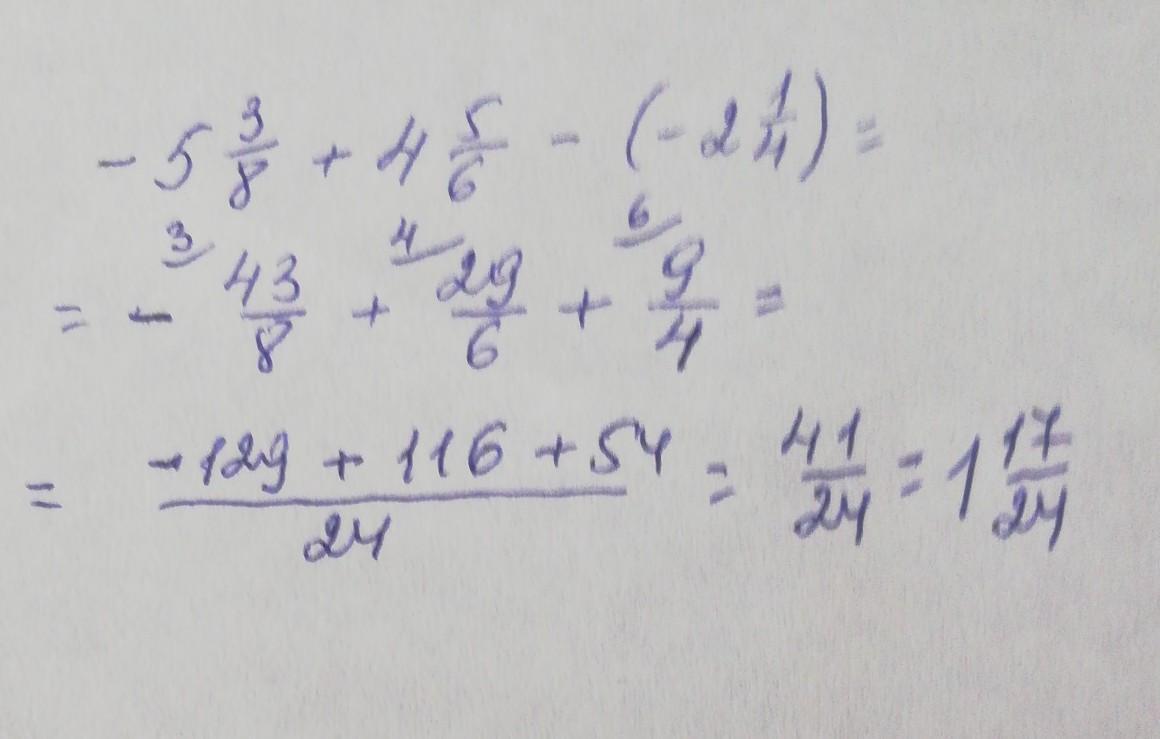 - 5 3/8 + 4 5/6 - (- 2 1/4) =
= - 3/ 43/8 + 4/ 29/6 + 6/ 9/4 =
= (-129 + 116 + 54)/24 = 41/24 = 1 17/24